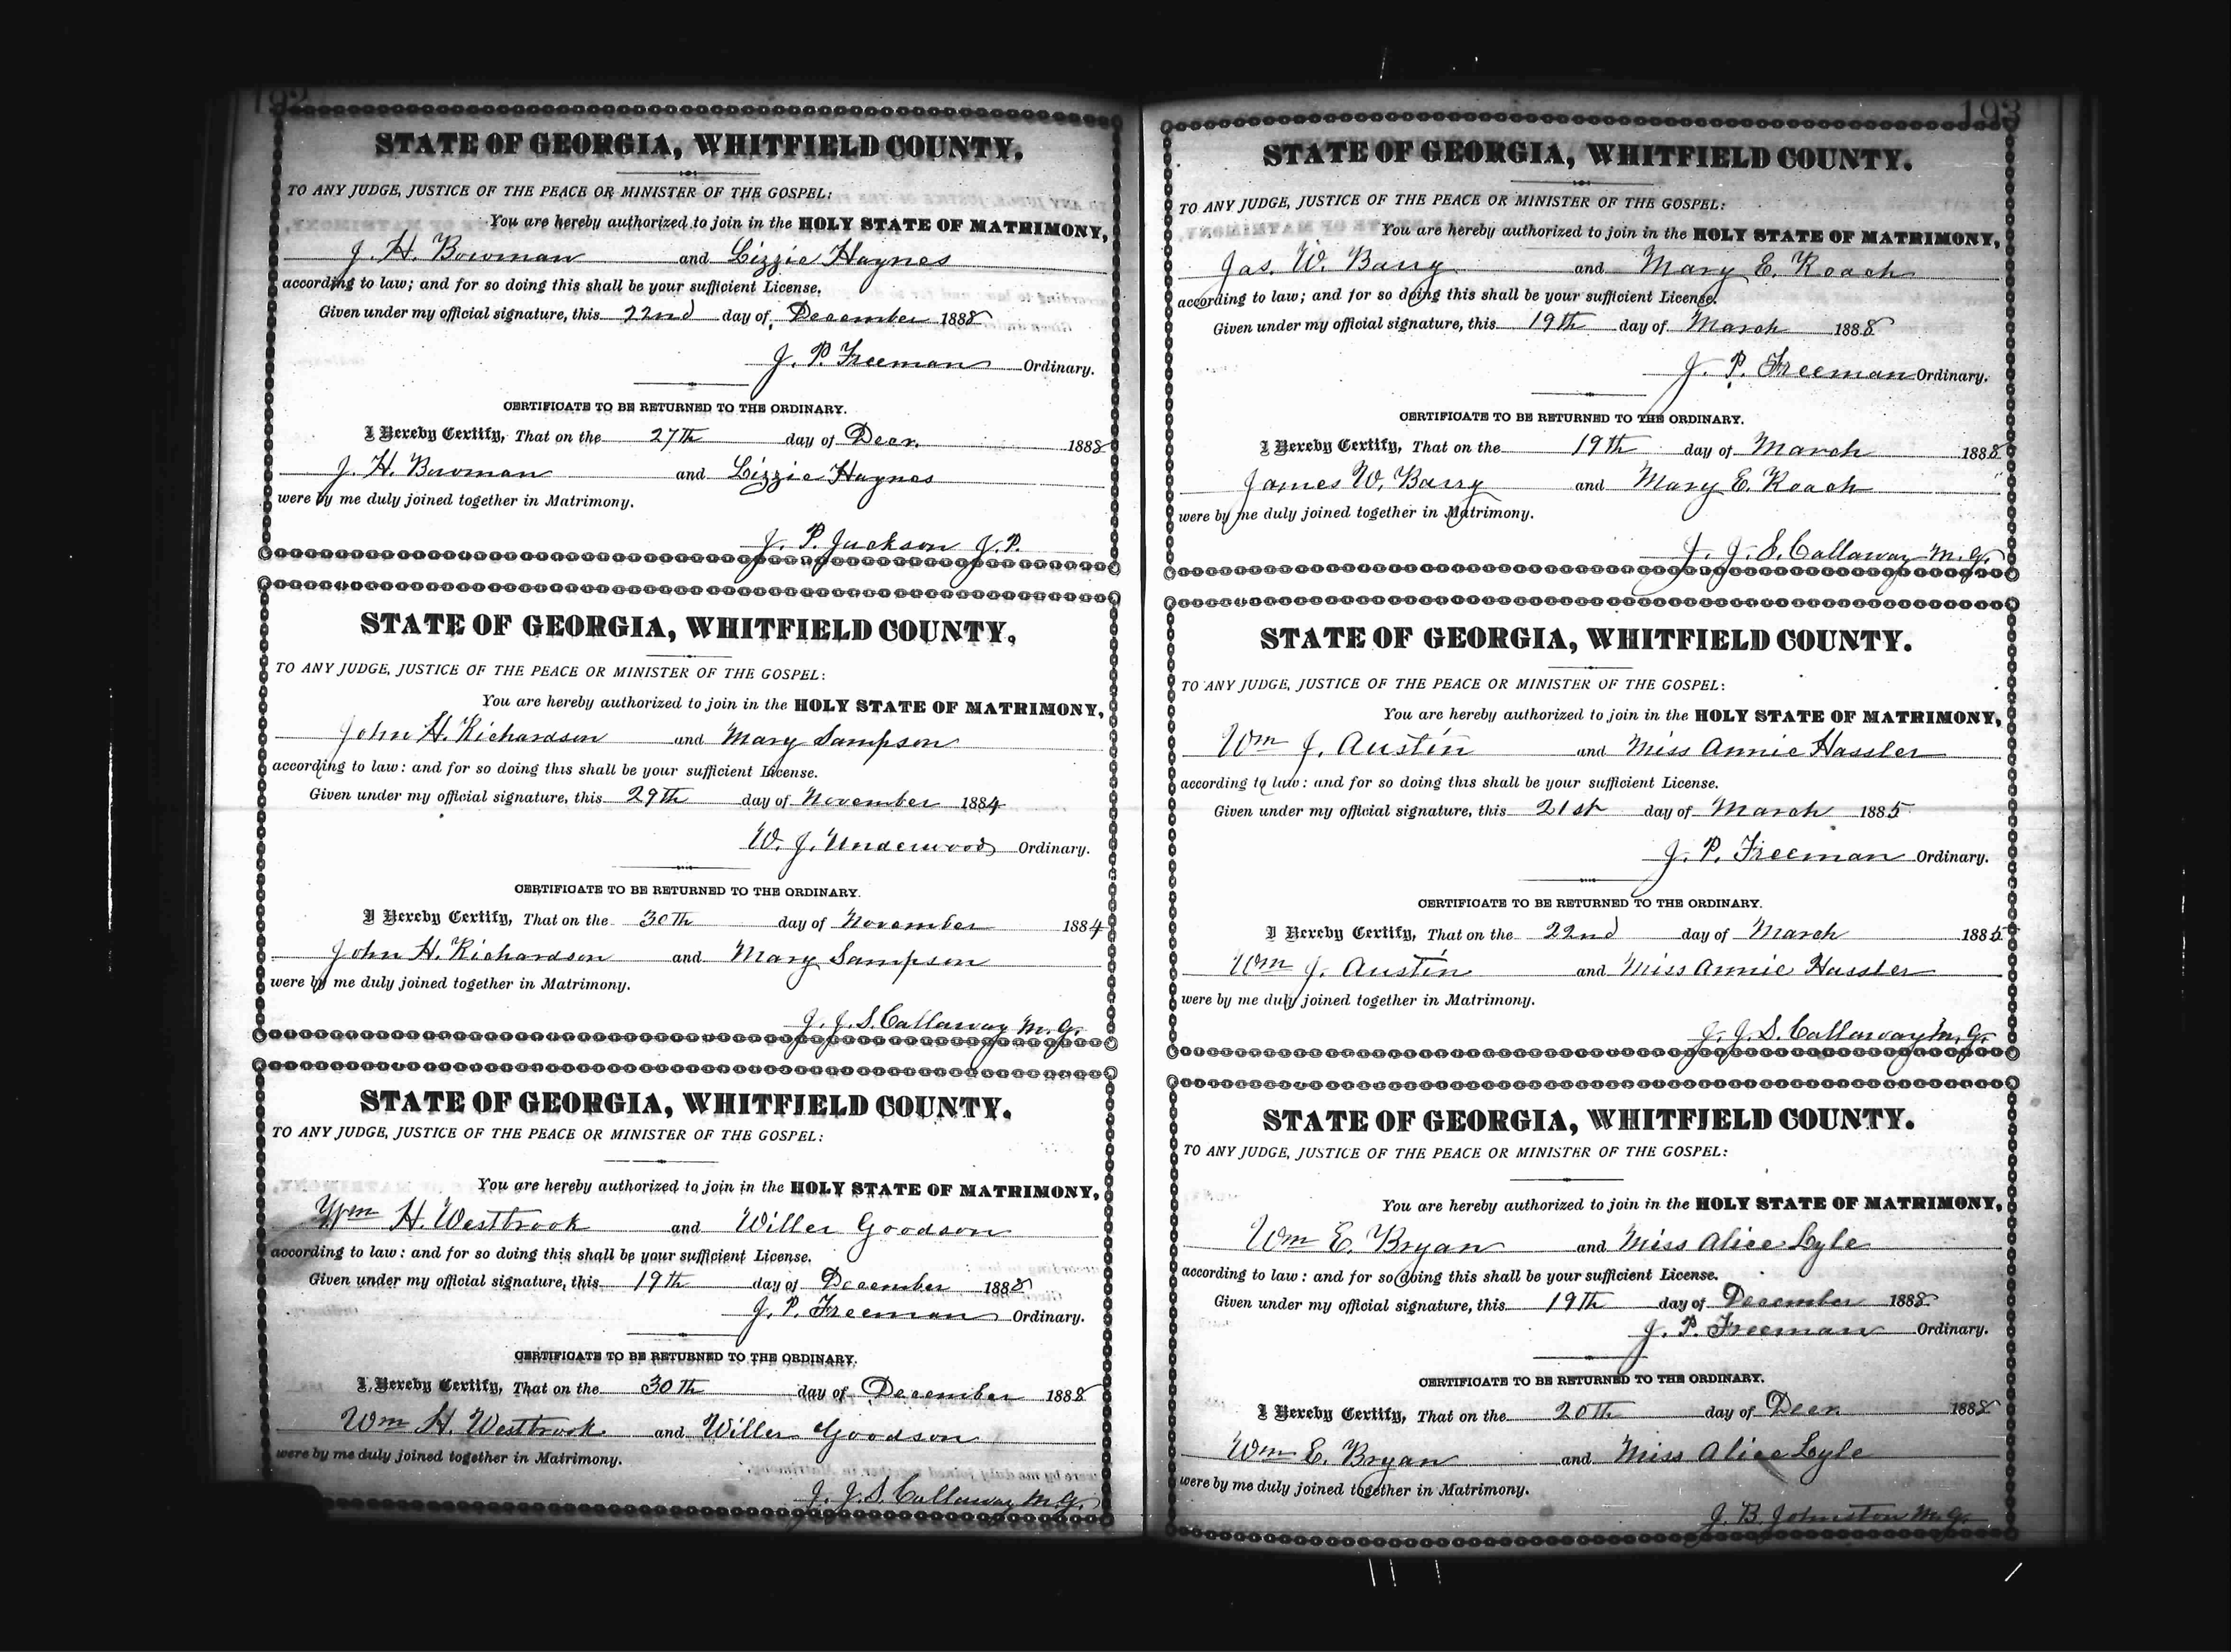 192
STATE OF GEORGIA, WHITFIELD COUNTY.
TO ANY JUDGE, JUSTICE OF THE PEACE OR MINISTER OF THE GOSPEL:
You are hereby authorized to join in the HOLY STATE OF MATRIMONY,
J. H. Bowman and Lizzie Haynes
according to law; and for so doing this shall be your sufficient License.
Given under my official signature, this 22nd day of December 1888
J. P. Freeman Ordinary.
CERTIFICATE TO BE RETURNED TO THE ORDINARY.
I Hereby Certify, That on the 27th day of Decr. 1888
J. H. Bowman and Lizzie Haynes
were by me duly joined together in Matrimony.
J. P. Jackson J.P.
STATE OF GEORGIA, WHITFIELD COUNTY.
TO ANY JUDGE, JUSTICE OF THE PEACE OR MINISTER OF THE GOSPEL:
You are hereby authorized to join in the HOLY STATE OF MATRIMONY,
John H. Richardson and Mary Sampson
according to law: and for so doing this shall be your sufficient License.
Given under my official signature, this 29th day of November 1884
W. J. Underwood Ordinary.
CERTIFICATE TO BE RETURNED TO THE ORDINARY.
I Hereby Certify, That on the 30th day of November 1884
John H. Richardson and Mary Sampson
were by me duly joined together in Matrimony.
J. J. S. Callaway M. G.
STATE OF GEORGIA, WHITFIELD COUNTY.
TO ANY JUDGE, JUSTICE OF THE PEACE OR MINISTER OF THE GOSPEL:
You are hereby authorized to join in the HOLY STATE OF MATRIMONY,
Wm H. Westbrook and Willer Goodson
according to law: and for so doing this shall be your sufficient License.
Given under my official signature, this 19th day of December 1888
J. P. Freeman Ordinary.
CERTIFICATE TO BE RETURNED TO THE ORDINARY.
I Hereby Certify, That on the 30th day of December 1888
Wm H. Westbrook and Willer Goodson
were by me duly joined together in Matrimony.
J. J. S. Callaway M.G.
193
STATE OF GEORGIA, WHITFIELD COUNTY.
TO ANY JUDGE, JUSTICE OF THE PEACE OR MINISTER OF THE GOSPEL:
You are hereby authorized to join in the HOLY STATE OF MATRIMONY,
Jas. W. Barry and Mary E. Roach
according to law; and for so doing this shall be your sufficient License.
Given under my official signature, this 19th day of March 1888
J. P. Freeman Ordinary.
CERTIFICATE TO BE RETURNED TO THE ORDINARY.
I Hereby Certify, That on the 19th day of March 1888
James W. Barry and Mary E. Roach
were by me duly joined together in Matrimony.
J. J. S. Callaway M. G.
STATE OF GEORGIA, WHITFIELD COUNTY.
TO ANY JUDGE, JUSTICE OF THE PEACE OR MINISTER OF THE GOSPEL:
You are hereby authorized to join in the HOLY STATE OF MATRIMONY,
Wm J. Austin and Miss Annie Hassler
according to law: and for so doing this shall be your sufficient License.
Given under my official signature, this 21st day of March 1885
J. P. Freeman Ordinary.
CERTIFICATE TO BE RETURNED TO THE ORDINARY.
I Hereby Certify, That on the 22nd day of March 1885
Wm J. Austin and Miss Annie Hassler
were by me duly joined together in Matrimony.
J. J. S. Callaway M. G.
STATE OF GEORGIA, WHITFIELD COUNTY.
TO ANY JUDGE, JUSTICE OF THE PEACE OR MINISTER OF THE GOSPEL:
You are hereby authorized to join in the HOLY STATE OF MATRIMONY,
Wm E. Bryan and Miss Alice Lyle
according to law: and for so doing this shall be your sufficient License.
Given under my official signature, this 19th day of December 1888
J. P. Freeman Ordinary.
CERTIFICATE TO BE RETURNED TO THE ORDINARY.
I Hereby Certify, That on the 20th day of Decr. 1888
Wm E. Bryan and Miss Alice Lyle
were by me duly joined together in Matrimony.
J. B. Johnston M.G.